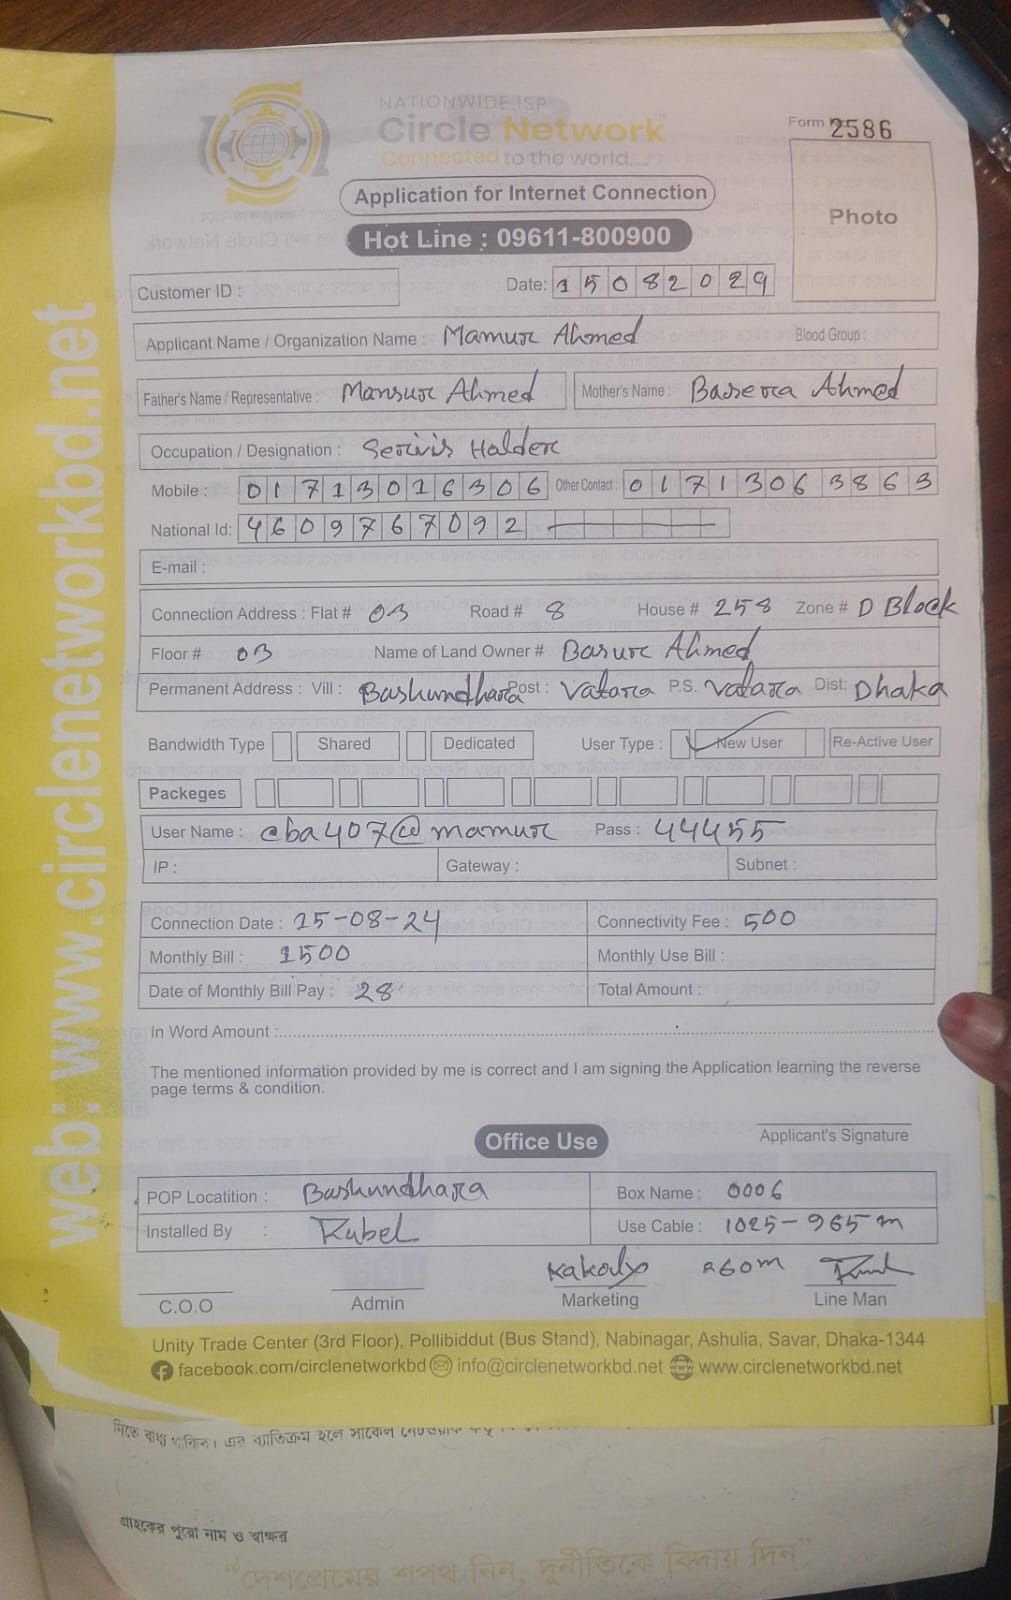 NATIONWIDE ISP
Circle Network™
Connected to the world....
Form 2586
Photo
Application for Internet Connection
Hot Line : 09611-800900
Customer ID :
Date: 15082029
Applicant Name / Organization Name : Mamur Ahmed Blood Group :
Father's Name / Representative : Mansur Ahmed Mother's Name : Ahmed
Occupation / Designation : Holder
Mobile : 01713016306 Other Contact : 01713063863
National Id: 4609767092
E-mail :
Connection Address : Flat # 03 Road # 8 House # 258 Zone # D Block
Floor # 03 Name of Land Owner # Basur Ahmed
Permanent Address : Vill : Bashundhara Post : Vatara P.S. Vatara Dist: Dhaka
Bandwidth Type Shared Dedicated User Type : New User Re-Active User
Packeges
User Name : cba407@mamur Pass : 44455
IP : Gateway : Subnet :
Connection Date : 15-08-24 Connectivity Fee : 500
Monthly Bill : 1500 Monthly Use Bill :
Date of Monthly Bill Pay : 28 Total Amount :
In Word Amount :
The mentioned information provided by me is correct and I am signing the Application learning the reverse
page terms & condition.
Applicant's Signature
Office Use
POP Locatition : Bashundhara Box Name : 0006
Installed By : Rubel Use Cable : 1025-965m
60m
C.O.O Admin Marketing Line Man
Unity Trade Center (3rd Floor), Pollibiddut (Bus Stand), Nabinagar, Ashulia, Savar, Dhaka-1344
facebook.com/circlenetworkbd info@circlenetworkbd.net www.circlenetworkbd.net
web: www.circlenetworkbd.net
দিতে বাধ্য থাকিব। এর ব্যতিক্রম হলে সার্কেল নেটওয়ার্ক
গ্রাহকের পুরো নাম ও স্বাক্ষর
"দেশপ্রেমের শপথ নিন, দুর্নীতিকে বিদায় দিন"